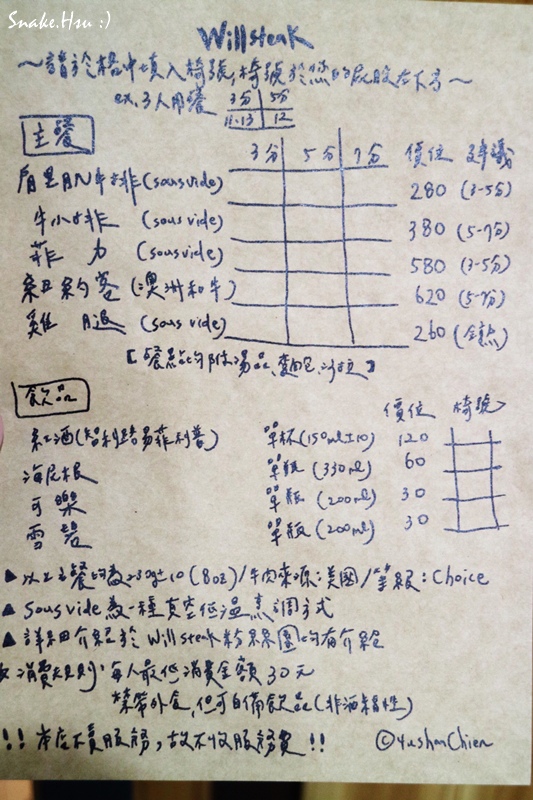 Snake.Hsu :)
Will steak
～請於格中填入椅號,椅號於您的屁股左下方～
ex. 3人用餐 3分 5分
11.13 12
主餐 3分 5分 7分 價位 建議
肩里肌牛排(sous vide) 280 (3-5分)
牛小排 (sous vide) 380 (5-7分)
菲力 (sous vide) 580 (3-5分)
紐約客 (澳洲和牛) 620 (5-7分)
雞腿 (sous vide) 260 (全熟)
【餐點均附湯品、麵包、沙拉】
飲品 價位 椅號
紅酒(智利路易菲利普) 單杯(150ml±10) 120
海尼根 單瓶 (330ml) 60
可樂 單瓶 (200ml) 30
雪碧 單瓶 (200ml) 30
▲以上主餐均為230g±10 (8oz)/牛肉來源:美國/等級:Choice
▲ sous vide 為一種真空低溫烹調方式
▲ 詳細介紹於 Will steak 粉絲團均有介紹
消費規則:每人最低消費金額30元
禁帶外食,但可自備飲品(非酒精性)
!! 本店不賣服務,故不收服務費 !! ©YushanChien